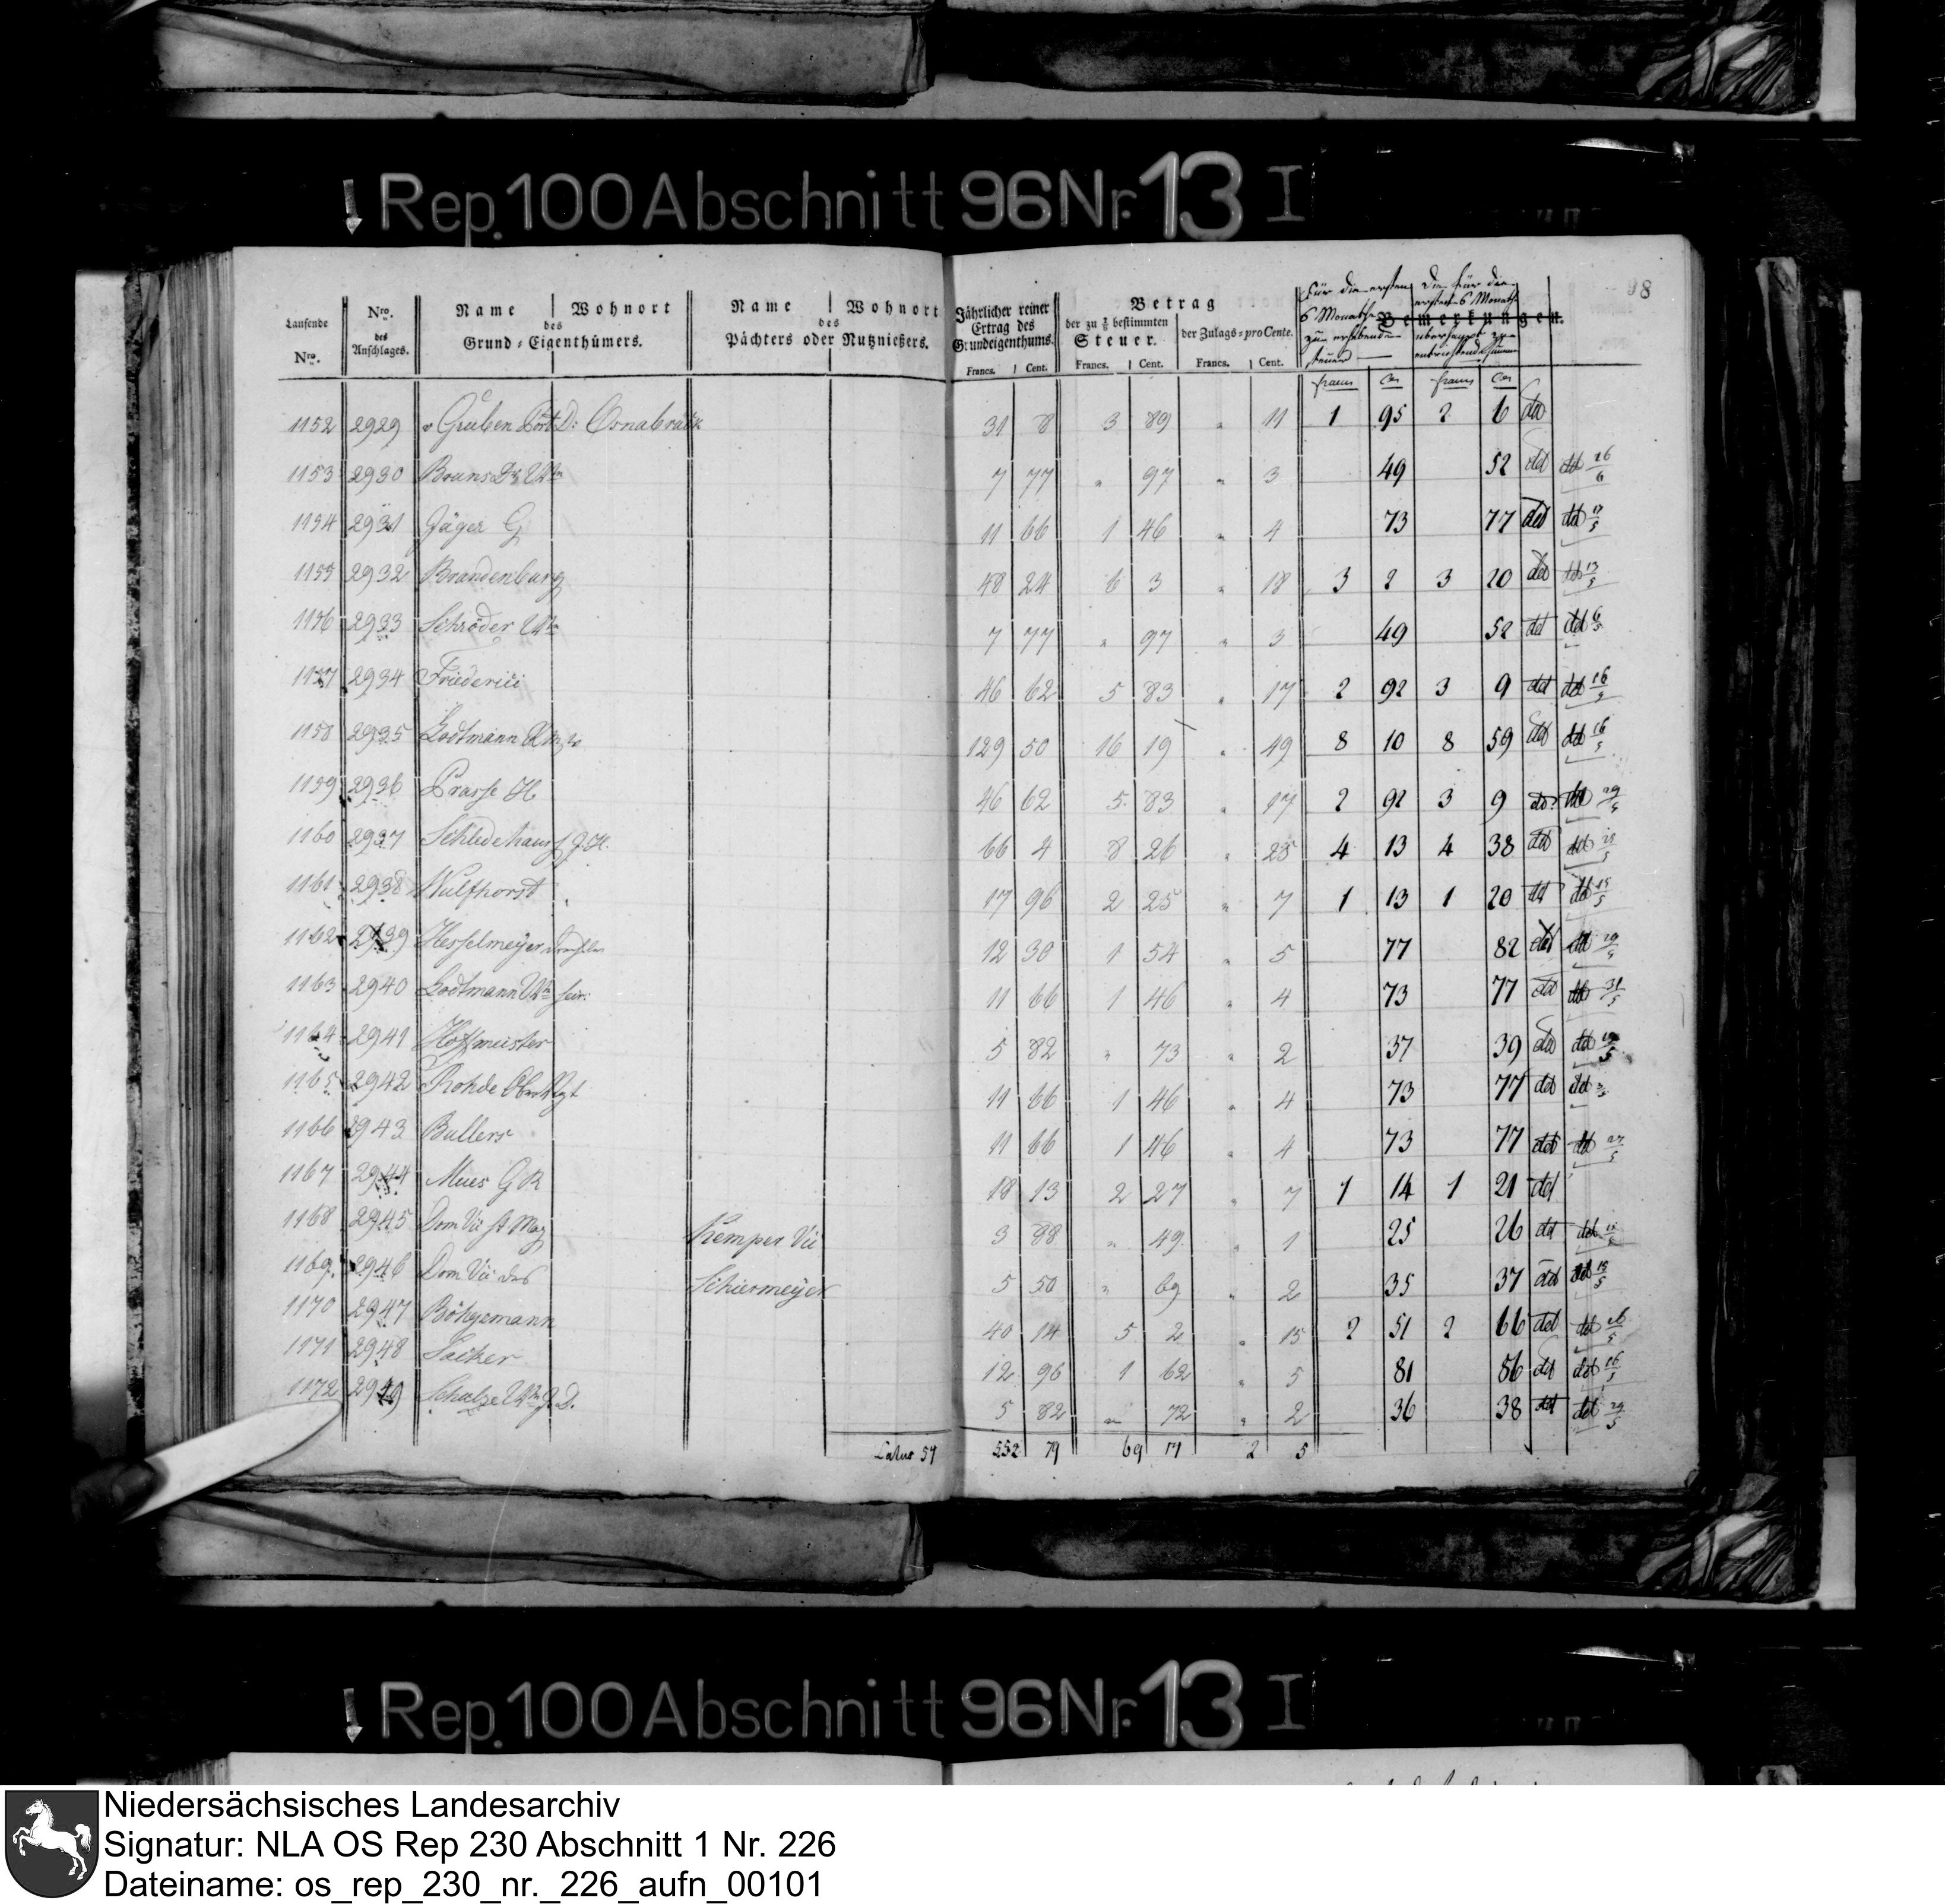 Rep. 100 Abschnitt 96 Nr. 13 I
98
Laufende Nro.
Nro. des Anschlages.
Name | Wohnort
des
Grund-Eigenthümers.
Name | Wohnort
des
Pächters oder Nutznießers.
Jährlicher reiner Ertrag des Grundeigenthums.
Francs. | Cent.
Betrag
der zu bestimmten Steuer.
Francs. | Cent.
der Zulags-pro Cente.
Francs. | Cent.
Bemerkungen.
Für die ersten 6 Monathe zu erhebende Steuer
Die für die ersten 6 Monath
francs Cen francs Cen
1152 2929 v Gruben Osnabrück 31 8 3 89 " 11 1 95 2 6 dd
1153 2930 Bruns 7 77 " 97 " 3 49 52 dd dd 26/6
1154 2931 Jäger G 11 66 1 46 " 4 73 77 dd dd 17/5
1155 2932 Brandenburg 48 24 6 3 " 18 3 2 3 20 dd dd 13/5
1156 2933 Schröder Wwe 7 77 " 97 " 3 49 52 dd dd 6/5
1157 2934 Friederici 46 62 5 83 " 17 2 92 3 9 dd dd 16/5
1158 2935 Lodtmann 129 50 16 19 " 49 8 10 8 59 dd dd 16/5
1159 2936 Prasse H 46 62 5 83 " 17 2 92 3 9 dd dd 29/5
1160 2937 Schledehaus J. H. 66 4 8 26 " 25 4 13 4 38 dd dd
1161 2938 Wulfhorst 17 96 2 25 " 7 1 13 1 20 dd dd 15/5
1162 2939 Hesselmeyer 12 30 1 54 " 5 77 82 dd dd
1163 2940 Lodtmann Wwe sen: 11 66 1 46 " 4 73 77 dd dd 31/5
1164 2941 Hoffmeister 5 82 " 73 " 2 37 39 dd dd
1165 2942 Rohde 11 66 1 46 " 4 73 77 dd dd
1166 2943 Bullers 11 66 1 46 " 4 73 77 dd dd 27/5
1167 2944 Meies G R 18 13 2 27 " 7 1 14 1 21 dd
1168 2945 Dom Vic St Mag Kemper Vic 3 88 " 49 " 1 25 26 dd dd
1169 2946 Dom Vic Schiermeyer 5 50 " 69 " 2 35 37 dd dd 15/5
1170 2947 Böhgemann 40 14 5 2 " 15 2 51 2 66 dd dd 26/5
1171 2948 Sacker 12 96 1 62 " 5 81 86 dd dd 16/5
1172 2949 Schulze Wwe J. D. 5 82 " 72 " 2 36 38 dd dd 29/5
Latus 57 552 79 69 17 2 5
Rep. 100 Abschnitt 96 Nr. 13 I
Niedersächsisches Landesarchiv
Signatur: NLA OS Rep 230 Abschnitt 1 Nr. 226
Dateiname: os_rep_230_nr._226_aufn_00101